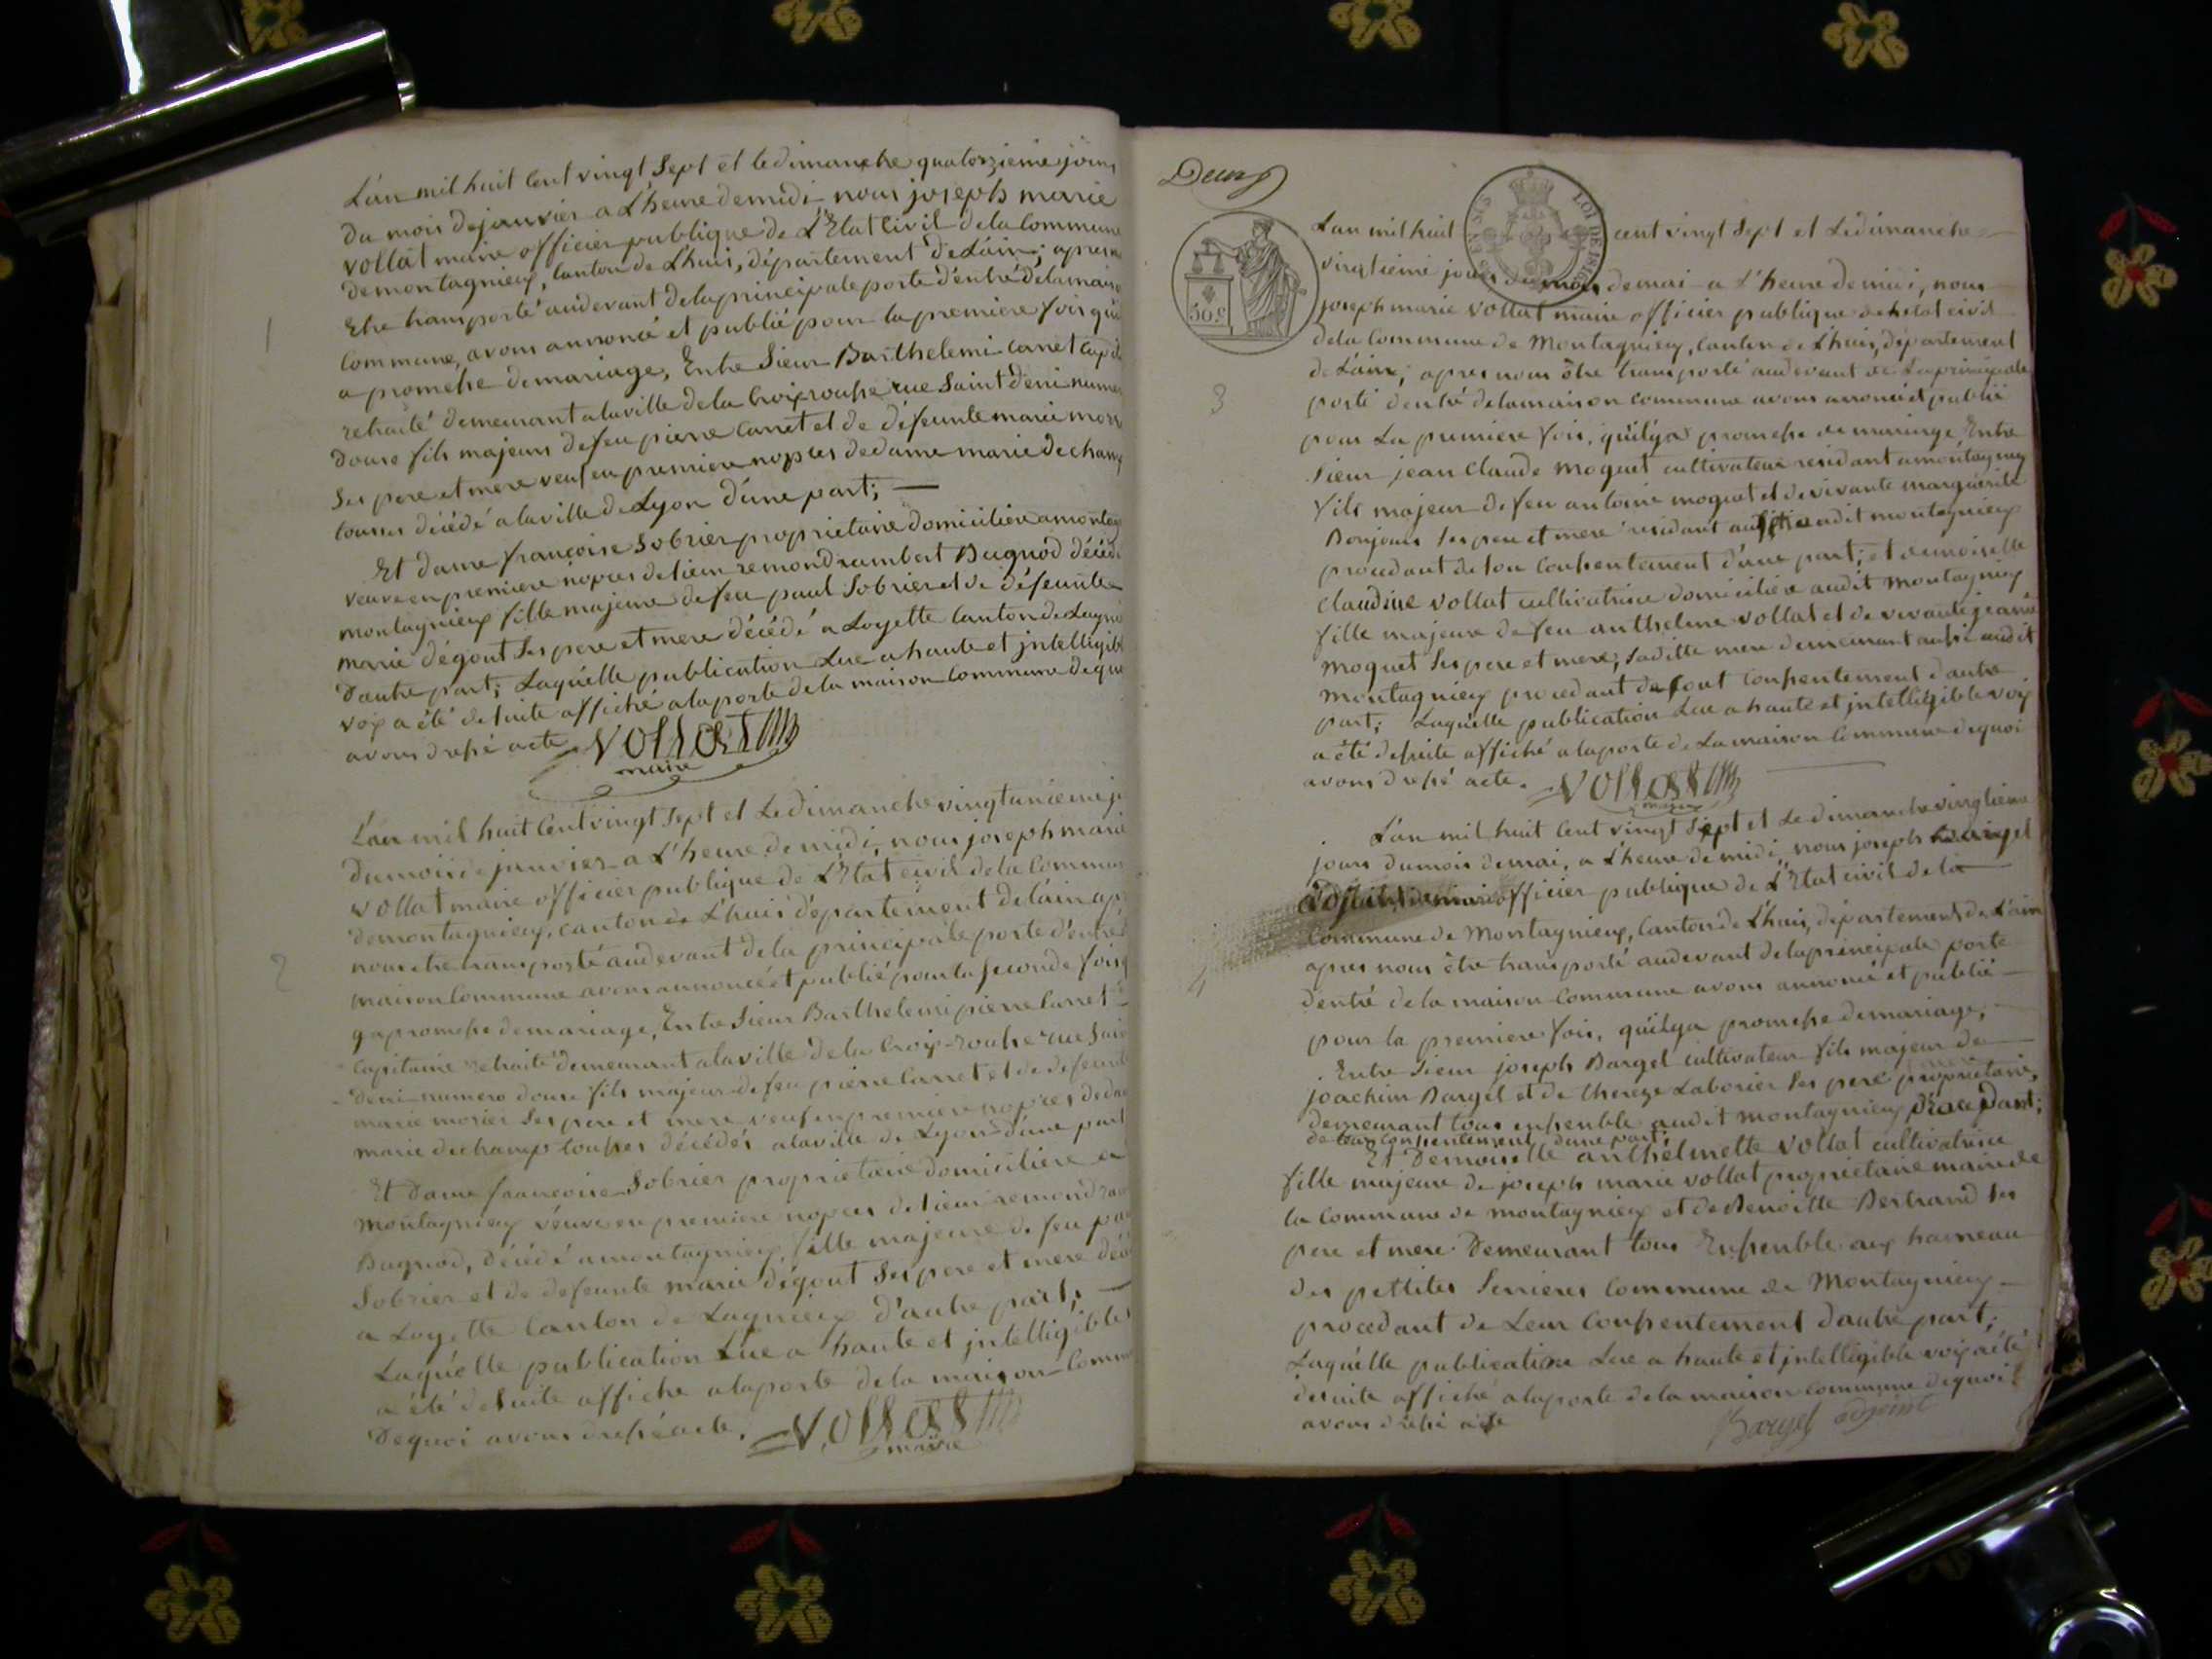 1
L'an mil huit Cent vingt Sept et le dimanche quatorzieme jour
du mois de janvier a L'heure de midi nous joseph marie
vollat maire officier publique de L'Etat Civil de la Commune
de montagnieux, Canton de L'huis, département de L'ain; apres n
Etre transporté audevant de la principale porte d'entré de la maiso
Commune, avons annoncé et publié pour la premiere fois qu'il
a promesse de mariage, Entre Sieur Barthelemi Carret Capi
retraité demeurant a la ville de la Croix rousse rue Saint deni numer
douse fils majeur de feu pierre Carret et de défeunte marie mor
Ses pere et mere veuf en premiere nopces de dame marie dechamp
tousses décédé a la ville de Lyon d'une part;
Et dame francoise Sobrier proprietaire domiciliere a montag
veuve en premiere nopces de sieur remond rambert Bugnod décédé
montagnieux fille majeure de feu paul Sobrier et de défeunte
marie dégout Ses pere et mere décédé a Loyette Canton de Lagni
d'autre part; Laquelle publication Lue a haute et jntelligibl
voix a été de suite affiché a la porte de la maison Commune de quo
avons dressé acte. Vollat
maire
2
L'an mil huit Cent vingt Sept et Le dimanche vingt unieme j
du mois de janvier a L'heure de midi, nous joseph marie
vollat maire officier publique de L'Etat civil de la Commun
de montagnieux, canton de L'huis département de lain ap
nous etre transporté audevant de la principale porte d'entré
maison Commune avons annoncé et publié pour la seconde fois q
y a promesse de mariage, Entre Sieur Barthelemi pierre Carret
Capitaine retraité demeurant a la ville de la Croix-rousse rue Sain
deni numero douse fils majeur de feu pierre Carret et de defeunt
marie morier Ses pere et mere veuf en premiere nopces de da
marie dechamp tousses décédés a la ville de Lyon d'une part
Et dame francoise Sobrier proprietaire domiciliere a
montagnieux veuve en premiere nopces de sieur remond ram
Bugnod, décédé a montagnieux, fille majeure de feu pa
Sobrier et de defeunte marie dégout Ses pere et mere déc
a Loyette Canton de Lagnieux d'autre part;
Laquelle publication Lue a haute et jntelligible
a été de suite affiché a la porte de la maison Comm
De quoi avons dressé acte. Vollat
maire
Deux
LOI DE 1816
50 c
3
L'an mil huit cent vingt Sept et Le dimanche
vingtieme jour du mois de mai a l'heure de midi, nous
joseph marie vollat maire officier publique de L'etat civil
de la Commune de Montagnieux, Canton de L'huis, département
de L'ain; apres nous être transporté audevant de La principale
porte d'entré de la maison commune avons annoncé et publié
pour La premiere fois, qu'il ya promesse de mariage, Entre
Sieur jean Claude moquet cultivateur residant a montagnieux
fils majeur de feu antoine moquet et de vivante marguerite
Bonjour Ses pere et mere residant aussi audit montagnieux
procedant de son Consentement d'une part; et demoiselle
Claudine vollat cultivatrice domiciliere audit montagnieux
fille majeure de feu anthelme vollat et de vivante jeanne
moquet Ses pere et mere; Saditte mere demeurant aussi audit
montagnieux procedant de sont Consentement d'autre
part; Laquelle publication Lue a haute et jntelligible voix
a été de suite affiché a la porte de La maison Commune de quoi
avons dressé acte. Vollat
maire
4
L'an mil huit Cent vingt Sept et Le dimanche vingtieme
jour du mois de mai, a L'heure de midi, nous joseph Bargel
adjoint du maire officier publique de L'Etat civil de la
Commune de Montagnieux, Canton de L'huis, département de L'ain
apres nous être transporté audevant de la principale porte
d'entré de la maison Commune avons annoncé et publié
pour la premiere fois, qu'il ya promesse de mariage,
Entre Sieur joseph Bargel cultivateur fils majeur de
joachim Bargel et de thereze Laborier Ses pere proprietaire,
demeurant tous ensenble audit montagnieux procedant;
de leur consentement d'une part;
Et Demoiselle anthelmette vollat cultivatrice
fille majeure de joseph marie vollat proprietaire maire de
la Commune de montagnieux et de Benoitte Bertrand Ses
pere et mere Demeurant tous Ensenble aux hameau
des pettites Serrieres Commune de Montagnieux
procedant de Leur Consentement d'autre part;
Laquelle publication Lue a haute et jntelligible voix a été
de suite affiché a la porte de la maison Commune de quoi
avons dressé acte Bargel adjoint